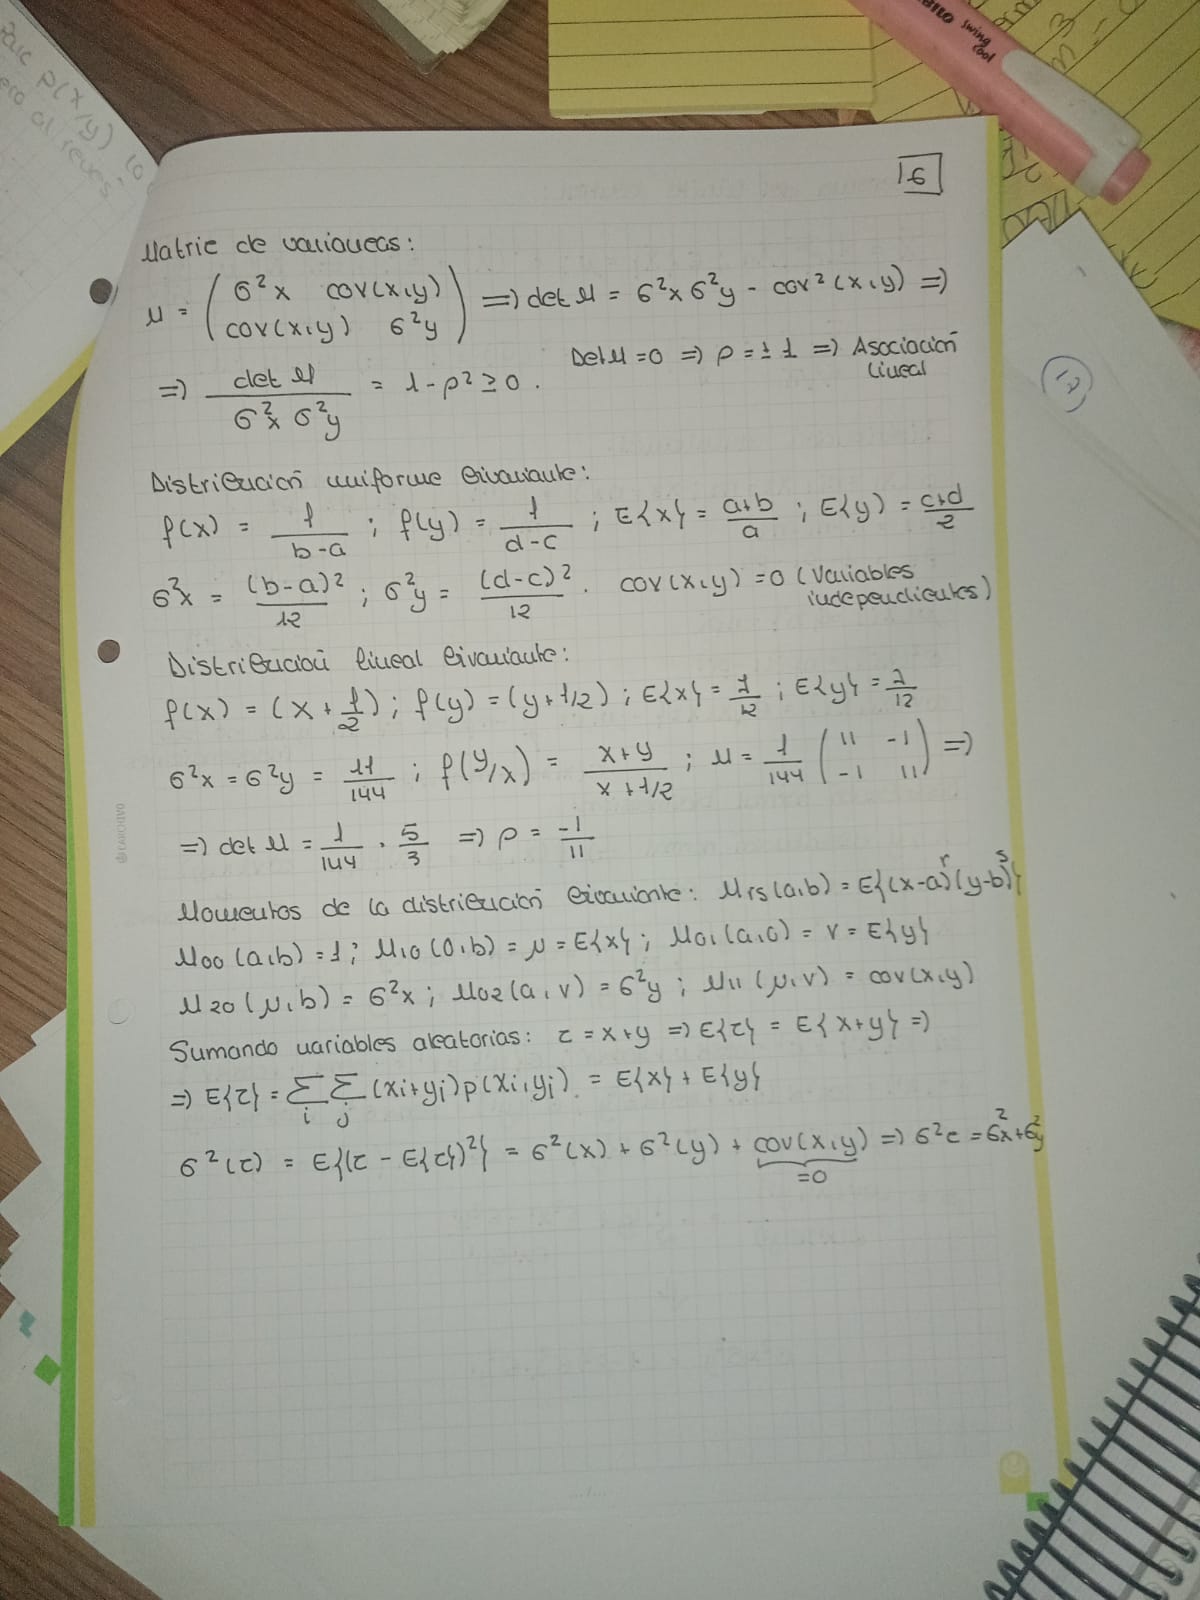 16
Matriz de varianzas:
M = ( σ²x cov(x,y) ; cov(x,y) σ²y ) => det M = σ²x σ²y - cov²(x,y) =>
=> det M / σ²x σ²y = 1 - ρ² ≥ 0. Det M = 0 => ρ = ± 1 => Asociación lineal
Distribución uniforme bivariante:
f(x) = 1/(b-a) ; f(y) = 1/(d-c) ; E{x} = (a+b)/a ; E{y) = (c+d)/2
σ²x = (b-a)²/12 ; σ²y = (d-c)²/12 . cov(x,y) = 0 (Variables independientes)
Distribución lineal bivariante:
f(x) = (x + 1/2) ; f(y) = (y + 1/2) ; E{x} = 7/12 ; E{y} = 7/12
σ²x = σ²y = 11/144 ; f(y/x) = (x+y)/(x+1/2) ; M = 1/144 ( 11 -1 ; -1 11 ) =>
=> det M = 1/144 · 5/3 => ρ = -1/11
Momentos de la distribución bivariante: Mrs(a,b) = E{(x-a)^r (y-b)^s}
M00(a,b) = 1 ; M10(0,b) = μ = E{x} ; M01(a,0) = ν = E{y}
M20(μ,b) = σ²x ; M02(a,ν) = σ²y ; M11(μ,ν) = cov(x,y)
Sumando variables aleatorias: z = x+y => E{z} = E{x+y} =>
=> E{z} = Σi Σj (xi+yj)p(xi,yj) = E{x} + E{y}
σ²(z) = E{(z - E{z})²} = σ²(x) + σ²(y) + cov(x,y) => σ²z = σ²x + σ²y
=0
12
p(x/y) lo
al revés
swing
cool